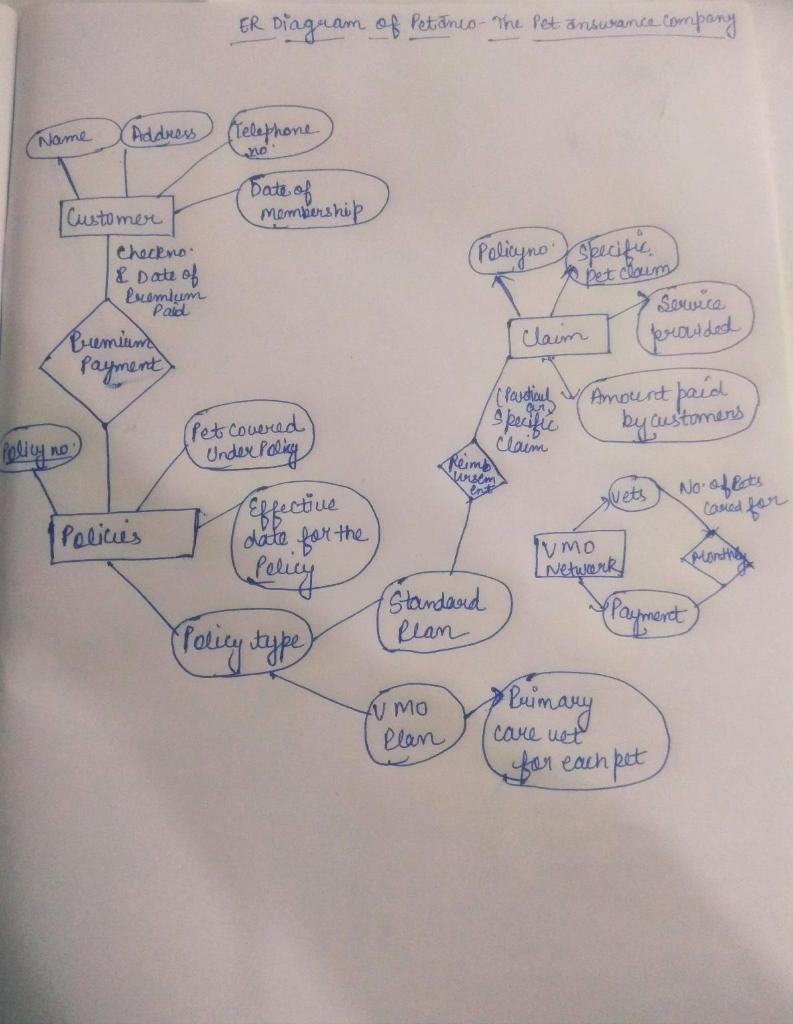 ER Diagram of Petanco - The Pet Insurance Company
Name
Address
Telephone
no.
Date of
membership
Customer
Check no.
& Date of
Premium
Paid
Premium
Payment
Policy no.
Specific
pet claim
Service
provided
Claim
Amount paid
by customers
Specific
Claim
Reimb
ursem
ent
Policy no.
Pet covered
Under Policy
Effective
date for the
Policy
Policies
Vets
No. of Pets
cared for
VMO
Network
Monthly
Payment
Standard
Plan
Policy type
VMO
Plan
Primary
care vet
for each pet